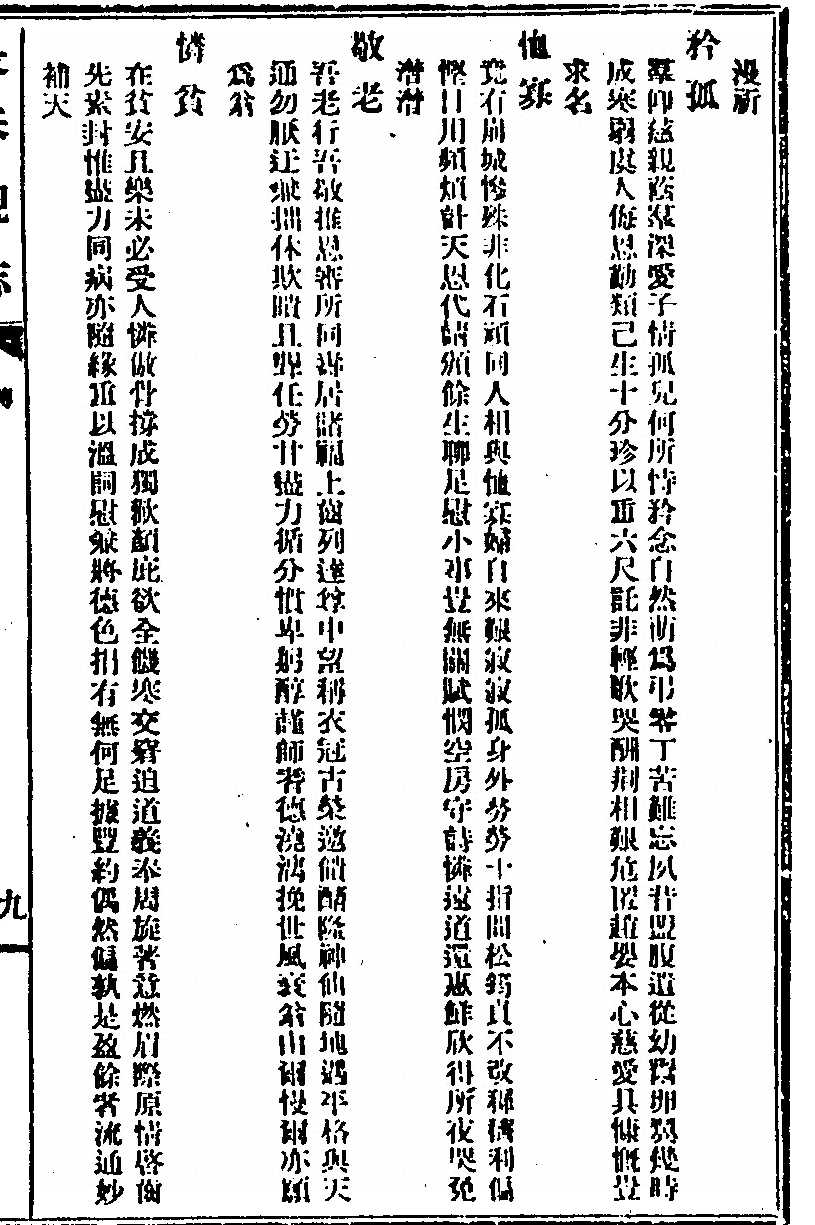 漫祈
矜孤
羣仰慈親蔭深愛子情孤兒何所恃矜念自然萌爲弔零丁苦難忘夙昔盟腹遺從幼對卵翼幾時
成寒弱虞人侮恩勤類己生十分珍以重六尺託非輕歌哭酬荆相艱危匿趙嬰本心慈愛具慷慨豈
求名
恤寡
竟有崩城慘殊非化石頑同人相與恤寡婦自來艱寂寂孤身外勞勞十指間松筠貞不改稱穧利偏
慳日用頻煩計天恩代請頒餘生聊足慰小事豈無關賦憫空房守詩憐遠道還惠鮮欣得所夜哭免
潸潸
敬老
吾老行吾敬推恩審所同壽居諸福上齒列達尊中望稱衣冠古榮邀饋酳隆神仙隨地遇平格與天
通勿厭迂兼拙休欺瞶且聾任勞甘盡力循分慣卑躬醇謹師耆德澆漓挽世風衰翁由爾慢爾亦願
爲翁
憐貧
在貧安且樂未必受人憐傲骨撐成獨歡顏庇欲全饑寒交窘迫道義奉周旋著意燃眉際原情啓齒
先泉封惟盡力同病亦隨緣重以溫詞慰兼將德色捐有無何足據豐約偶然偏孰是盈餘者流通妙
補天
九